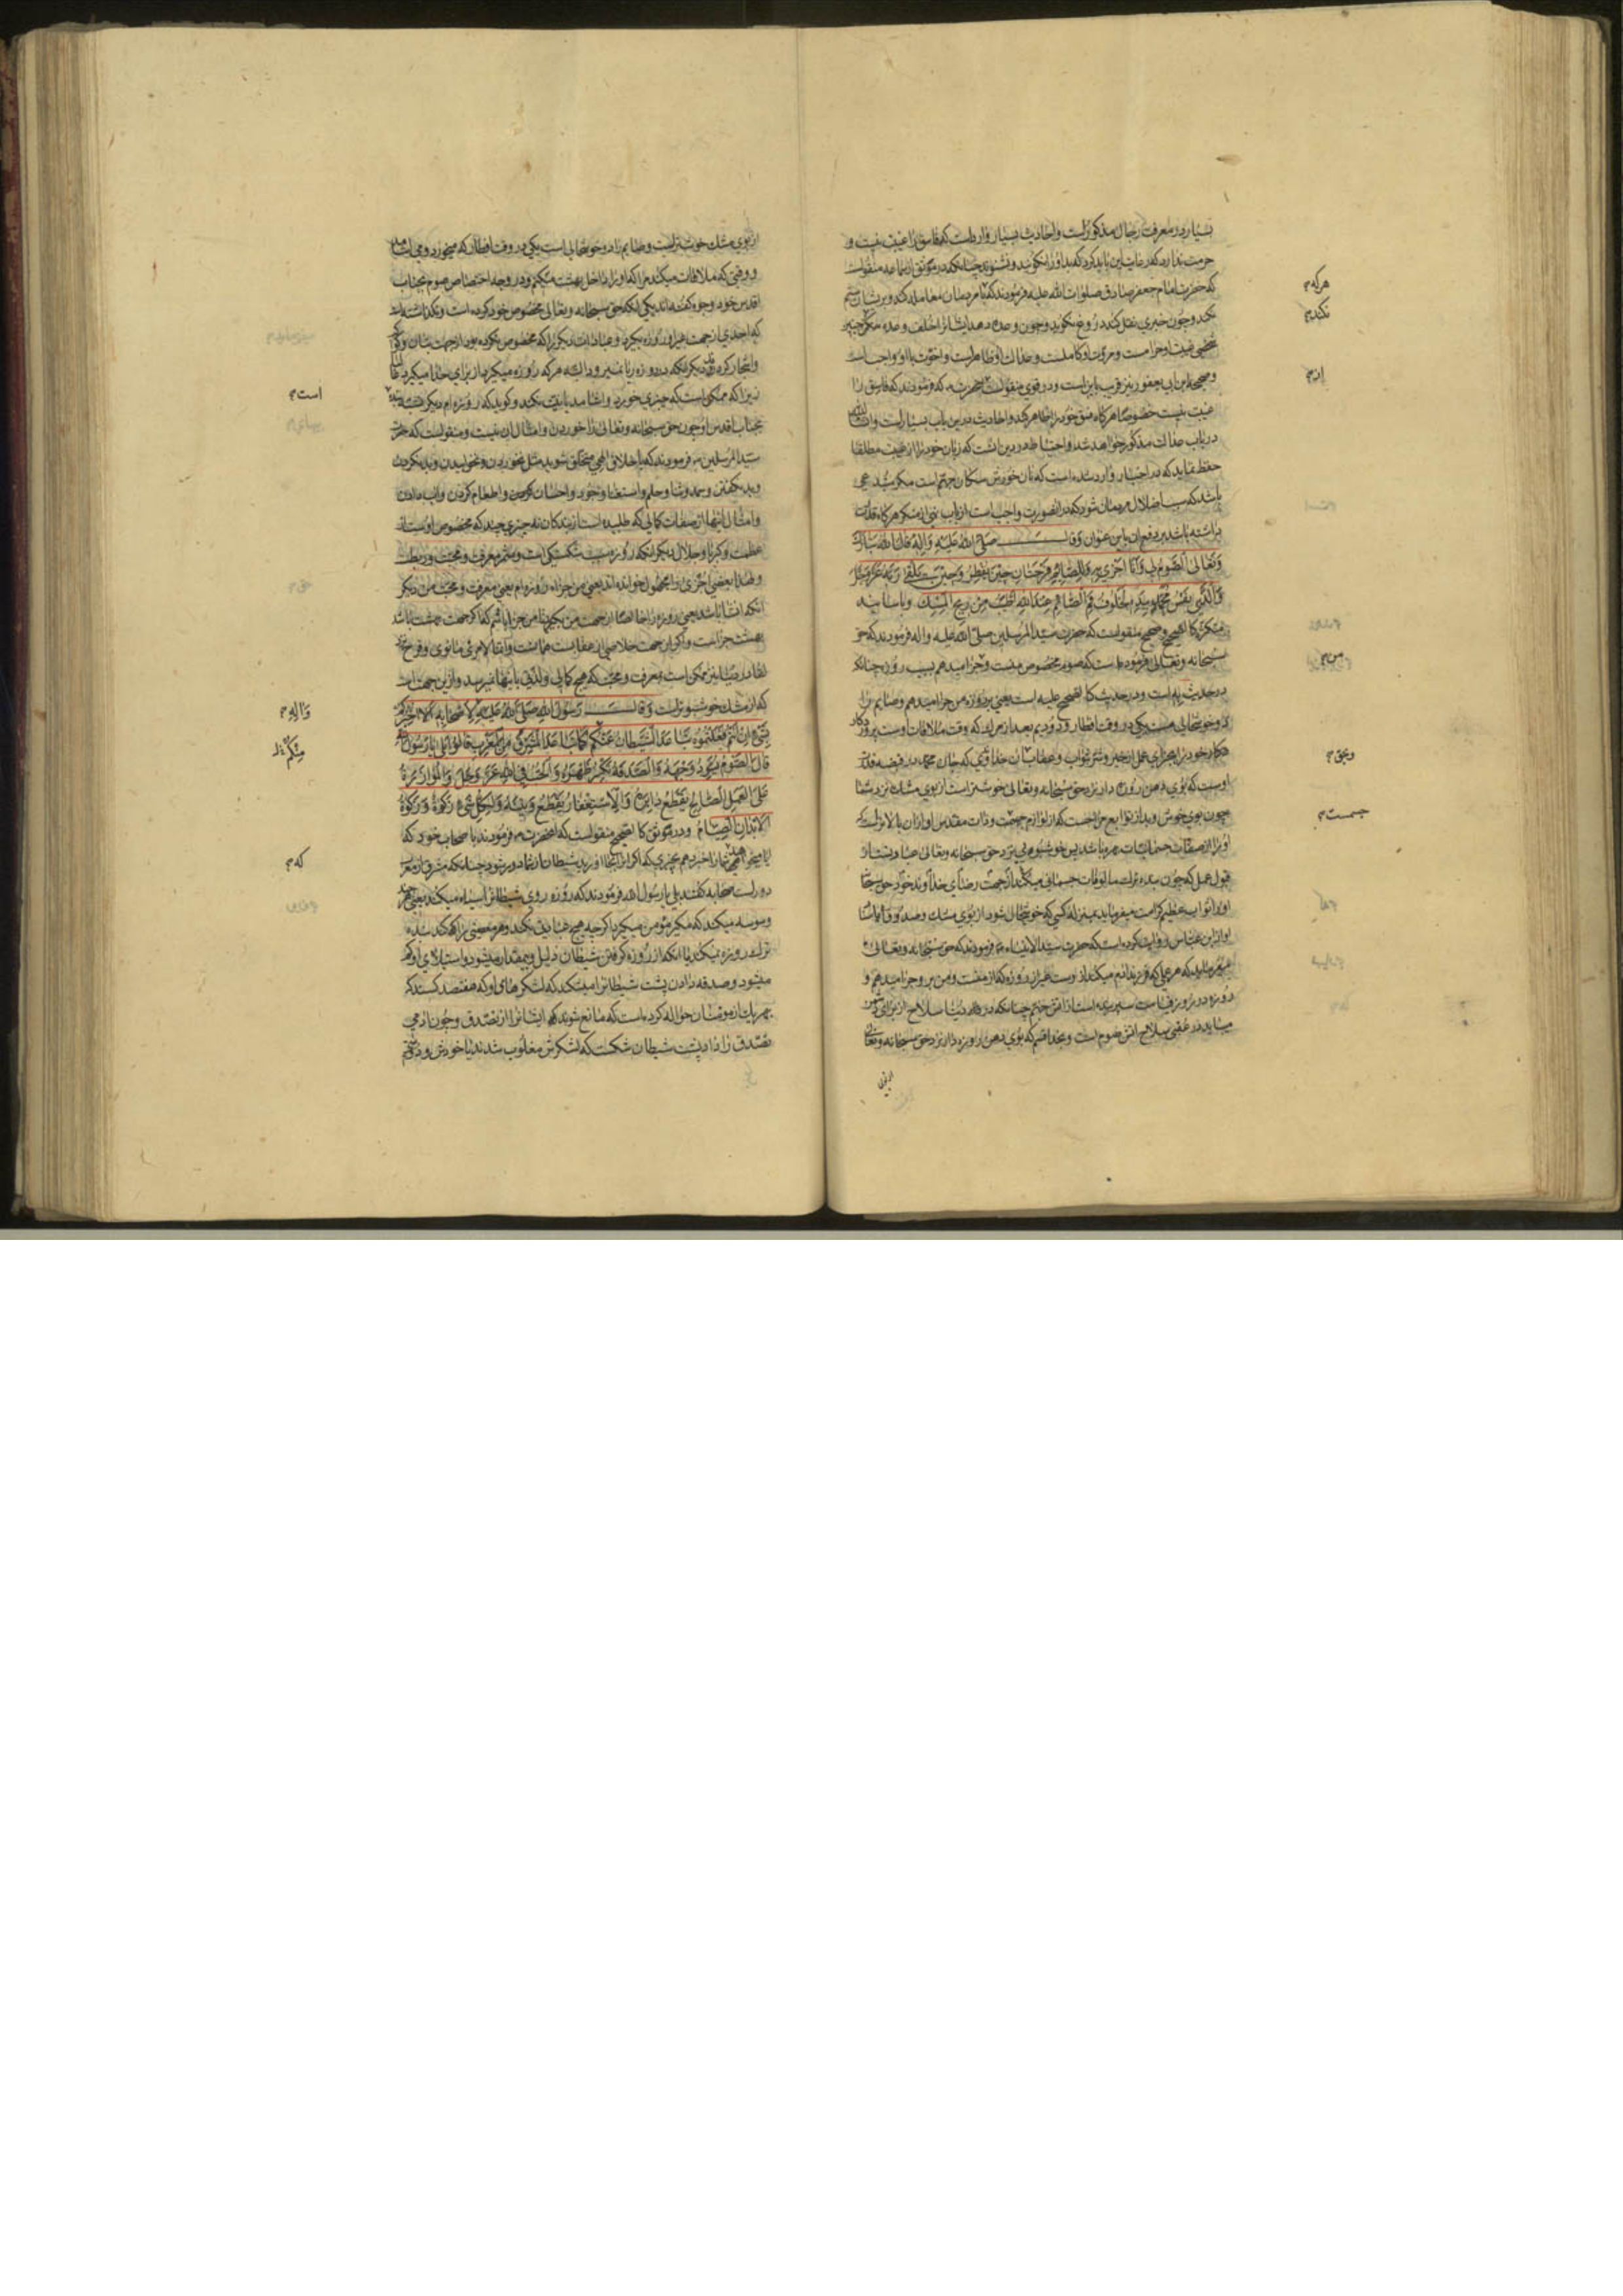 بسیار در معرفت رجال مذکورست و احادیث بسیار وارد است که فاسق را غیبت نیست و
حرمت ندارد که رعایت این باید کرد که بد او را نگویند و نشنوند چنانکه در موثق از سماعه منقولست
هرکه م
که حضرت امام جعفر صادق صلوات الله علیه فرمودند که با مردمان معامله کند و بریشان ستم
نکند م
نکند و چون خبری نقل کند دروغ نگوید و چون وعده دهد ایشانرا خلف وعده نکند
غیبت او حرامست و مروت او کاملست و عدالت او ظاهرست و اخوت با او واجب است
و صحیحه ابن ابی یعفور نیز قریب باین است و در قوی منقولست که فرمودند که فاسق را
غیبت نیست خصوصا هرگاه فسق خود را ظاهر کند و احادیث درین باب بسیارست و انشاالله
در باب عدالت مذکور خواهد شد و احتیاط درین است که زبان خود را از غیبت مطلقا
حفظ نماید که در اخبار وارد شده است که نان خورش سگان جهنم است مگر
باشد که سبب اضلال مردمان شود که در انصورت واجب است از باب نهی از منکر هرگاه قدرت
داشته باشد بر دفع ان باین عنوان وقال صلی الله علیه واله قال الله تبارک
وتعالی الصوم لی وانا اجزی به وللصائم فرحتان حین یفطر وحین یلقی ربه عز وجل
والذی نفس محمد بیده لخلوف فم الصائم عند الله اطیب من ریح المسک و باسانید
متکثره کالصحیح و صحیح منقولست که حضرت سید المرسلین صلی الله علیه واله فرمودند که حق
من م
سبحانه و تعالی فرموده است که صوم مخصوص منست و جزا میدهم بسبب روزه چنانکه
در حدیث به است و در حدیث کالصحیح علیه است یعنی بر روزه من جزا میدهم و صایم را
دو خوشحالی هست یکی در وقت افطار و دویم بعد از مردن که وقت ملاقات اوست پروردگار
وبحق م
خود را جزای عمل از خیر و شر ثواب و عقاب بان خداوندی که جان محمد در قبضه قدرت
اوست که بوی دهن روزه دار نزد حق سبحانه و تعالی خوشتر است از بوی مشک نزد شما
چون بوی خوش و بد از توابع مزاجست که از لوازم جسمست و ذات مقدس او از ان بالاترست که
او را از صفات جسمانیات بهره باشد پس خوشبویی نزد حق سبحانه و تعالی عبارتست از
قبول عمل که چون بنده ترک مالوفات جسمانی میکند از جهت رضای خداوند خود حق سبحانه
او را ثواب عظیم کرامت میفرماید بمنزله کسی که خوشحال شود از بوی مشک و صدوق باسناد
او از ابن عباس روایت کرده است که حضرت سید الانبیاء فرمودند که حق سبحانه و تعالی
میفرماید که هر عملی که فرزند ادم میکند از اوست غیر از روزه که از منست و من بر او جزا میدهم و
روزه در روز قیامت سپر بنده است از اتش جهنم چنانکه در دنیا سلاح از برای دشمن
میباید در عقبی سلاح اتش صوم است و بخدا قسم که بوی دهن روزه دار نزد حق سبحانه و تعالی
از بوی
از بوی مشک خوشتر است و صایم را دو خوشحالی است یکی در وقت افطار که میخورد و می اشامد
و وقتی که ملاقات میکند مرا که او را داخل بهشت میکنم و در وجه اختصاص صوم بجناب
اقدس خود وجوه گفته اند یکی انکه حق سبحانه و تعالی مخصوص خود کرده است و نگذاشته است
که احدی از جهت غیر او روزه بگیرد و عبادات دیگر را که مخصوص نکرده بود از جهت بتان
دیگر انکه در روزه ریا نمیرود البته هر که روزه میگیرد از برای خدا میگیرد
است م
زیرا که ممکن است که چیزی خورد و اشامد یا نیت نکند و گوید که روزه ام دیگر
بجناب اقدس او چون حق سبحانه و تعالی را خوردن و امثال ان نیست و منقولست که حضرت
سید المرسلین فرمودند که باخلاق الهی متخلق شوید مثل نخوردن و نخوابیدن و بد نکردن
و بد نگفتن و حمد و ثنا و حلم و استغنا و جود و احسان کردن و اطعام کردن و اب دادن
و امثال اینها از صفات کمالی که طلبیده است از بندگان نه چیزی چند که مخصوص اوست از
عظمت و کبریا و جلال دیگر انکه روزه سبب شکستگی است و مثمر معرفت و محبت
و لهذا بعضی اجزی را مجهول خوانده اند یعنی من جزاء روزه ام یعنی معرفت و محبت من دیگر
بهشت جزاست و اگر از جهت خلاصی از عقابست
لقا در دنیا نیز ممکن است بمعرفت و محبت که هیچ کمالی و لذتی باینها نمیرسد و ازین جهت است
واله م
که از مشک خوشبوترست وقال رسول الله صلی الله علیه لاصحابه الا اخبرکم
منکم
بشیء ان انتم فعلتموه تباعد الشیطان عنکم کما تباعد المشرق من المغرب قالوا بلی یا رسول الله
قال الصوم یسود وجهه والصدقة تکسر ظهره والحب فی الله عز وجل والموازرة
علی العمل الصالح یقطع دابره والاستغفار یقطع وتینه ولکل شیء زکوة وزکوة
الابدان الصیام و در موثق کالصحیح منقولست که انحضرت فرمودند باصحاب خود که
که م
ایا میخواهید شما را خبر دهم بچیزی که اگر انرا بجا اورید شیطان از شما دور شود چنانکه مشرق از مغرب
دورست صحابه گفتند بلی یا رسول الله فرمودند که روزه روی شیطانرا سیاه میکند یعنی
وسوسه میکند که مگیر مؤمن میگیرد اگرچه هیچ عبادت نکند و هر معصیتی را که کند
ترک روزه نمیکند یا انکه از روزه گرفتن شیطان ذلیل و بیمقدار میشود و استیلای او کم
میشود و صدقه دادن پشت شیطانرا میشکند که لشکرهای او که هفتصد کسند که
بهر یک از مومنان حواله کرده است که مانع شوند ایشانرا از تصدق و چون ادمی
تصدق را داد پشت شیطان شکست که لشکرش مغلوب شدند یا خودش و دشمنی